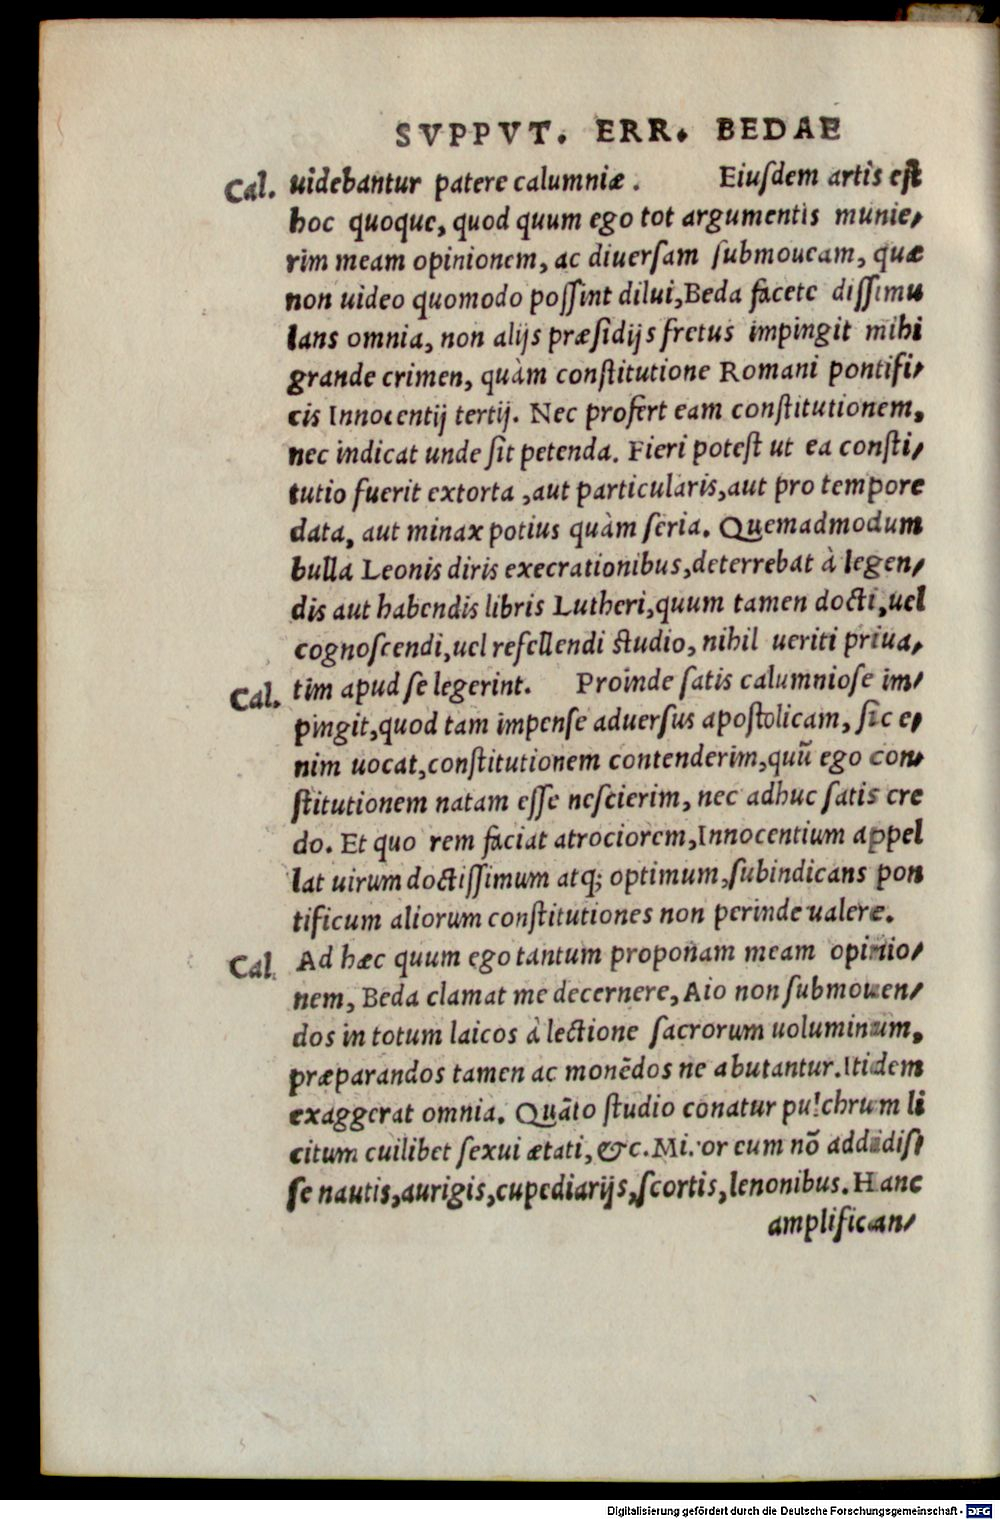 SVPPVT. ERR. BEDAE
Cal. uidebantur patere calumniæ. Eiuſdem artis eſt
hoc quoque, quod quum ego tot argumentis munie⸗
rim meam opinionem, ac diuerſam ſubmoueam, quæ
non uideo quomodo poſſint dilui,Beda facete diſſimu
lans omnia, non alijs præſidijs fretus impingit mihi
grande crimen, quàm conſtitutione Romani pontifi⸗
cis Innocentij tertij. Nec profert eam conſtitutionem,
nec indicat unde ſit petenda. Fieri poteſt ut ea conſti⸗
tutio fuerit extorta ,aut particularis,aut pro tempore
data, aut minax potius quàm ſeria. Quemadmodum
bulla Leonis diris execrationibus,deterrebat à legen⸗
dis aut habendis libris Lutheri,quum tamen docti,uel
cognoſcendi,uel refellendi ſtudio, nihil ueriti priua⸗
Cal. tim apud ſe legerint. Proinde ſatis calumnioſe im⸗
pingit,quod tam impenſe aduerſus apoſtolicam, ſic e⸗
nim uocat,conſtitutionem contenderim,quũ ego con⸗
ſtitutionem natam eſſe neſcierim, nec adhuc ſatis cre
do. Et quo rem faciat atrociorem,Innocentium appel
lat uirum doctiſſimum atq; optimum,ſubindicans pon
tificum aliorum conſtitutiones non perinde ualere.
Cal. Ad hæc quum ego tantum proponam meam opinio⸗
nem, Beda clamat me decernere, Aio non ſubmouen⸗
dos in totum laicos à lectione ſacrorum uoluminum,
præparandos tamen ac monẽdos ne abutantur.Itidem
exaggerat omnia. Quãto ſtudio conatur pulchrum li
citum cuilibet ſexui ætati, &c. Miror eum nõ addidiſ⸗
ſe nautis,aurigis,cupediarijs,ſcortis,lenonibus. Hanc
amplifican⸗
Digitalisierung gefördert durch die Deutsche Forschungsgemeinschaft - DFG